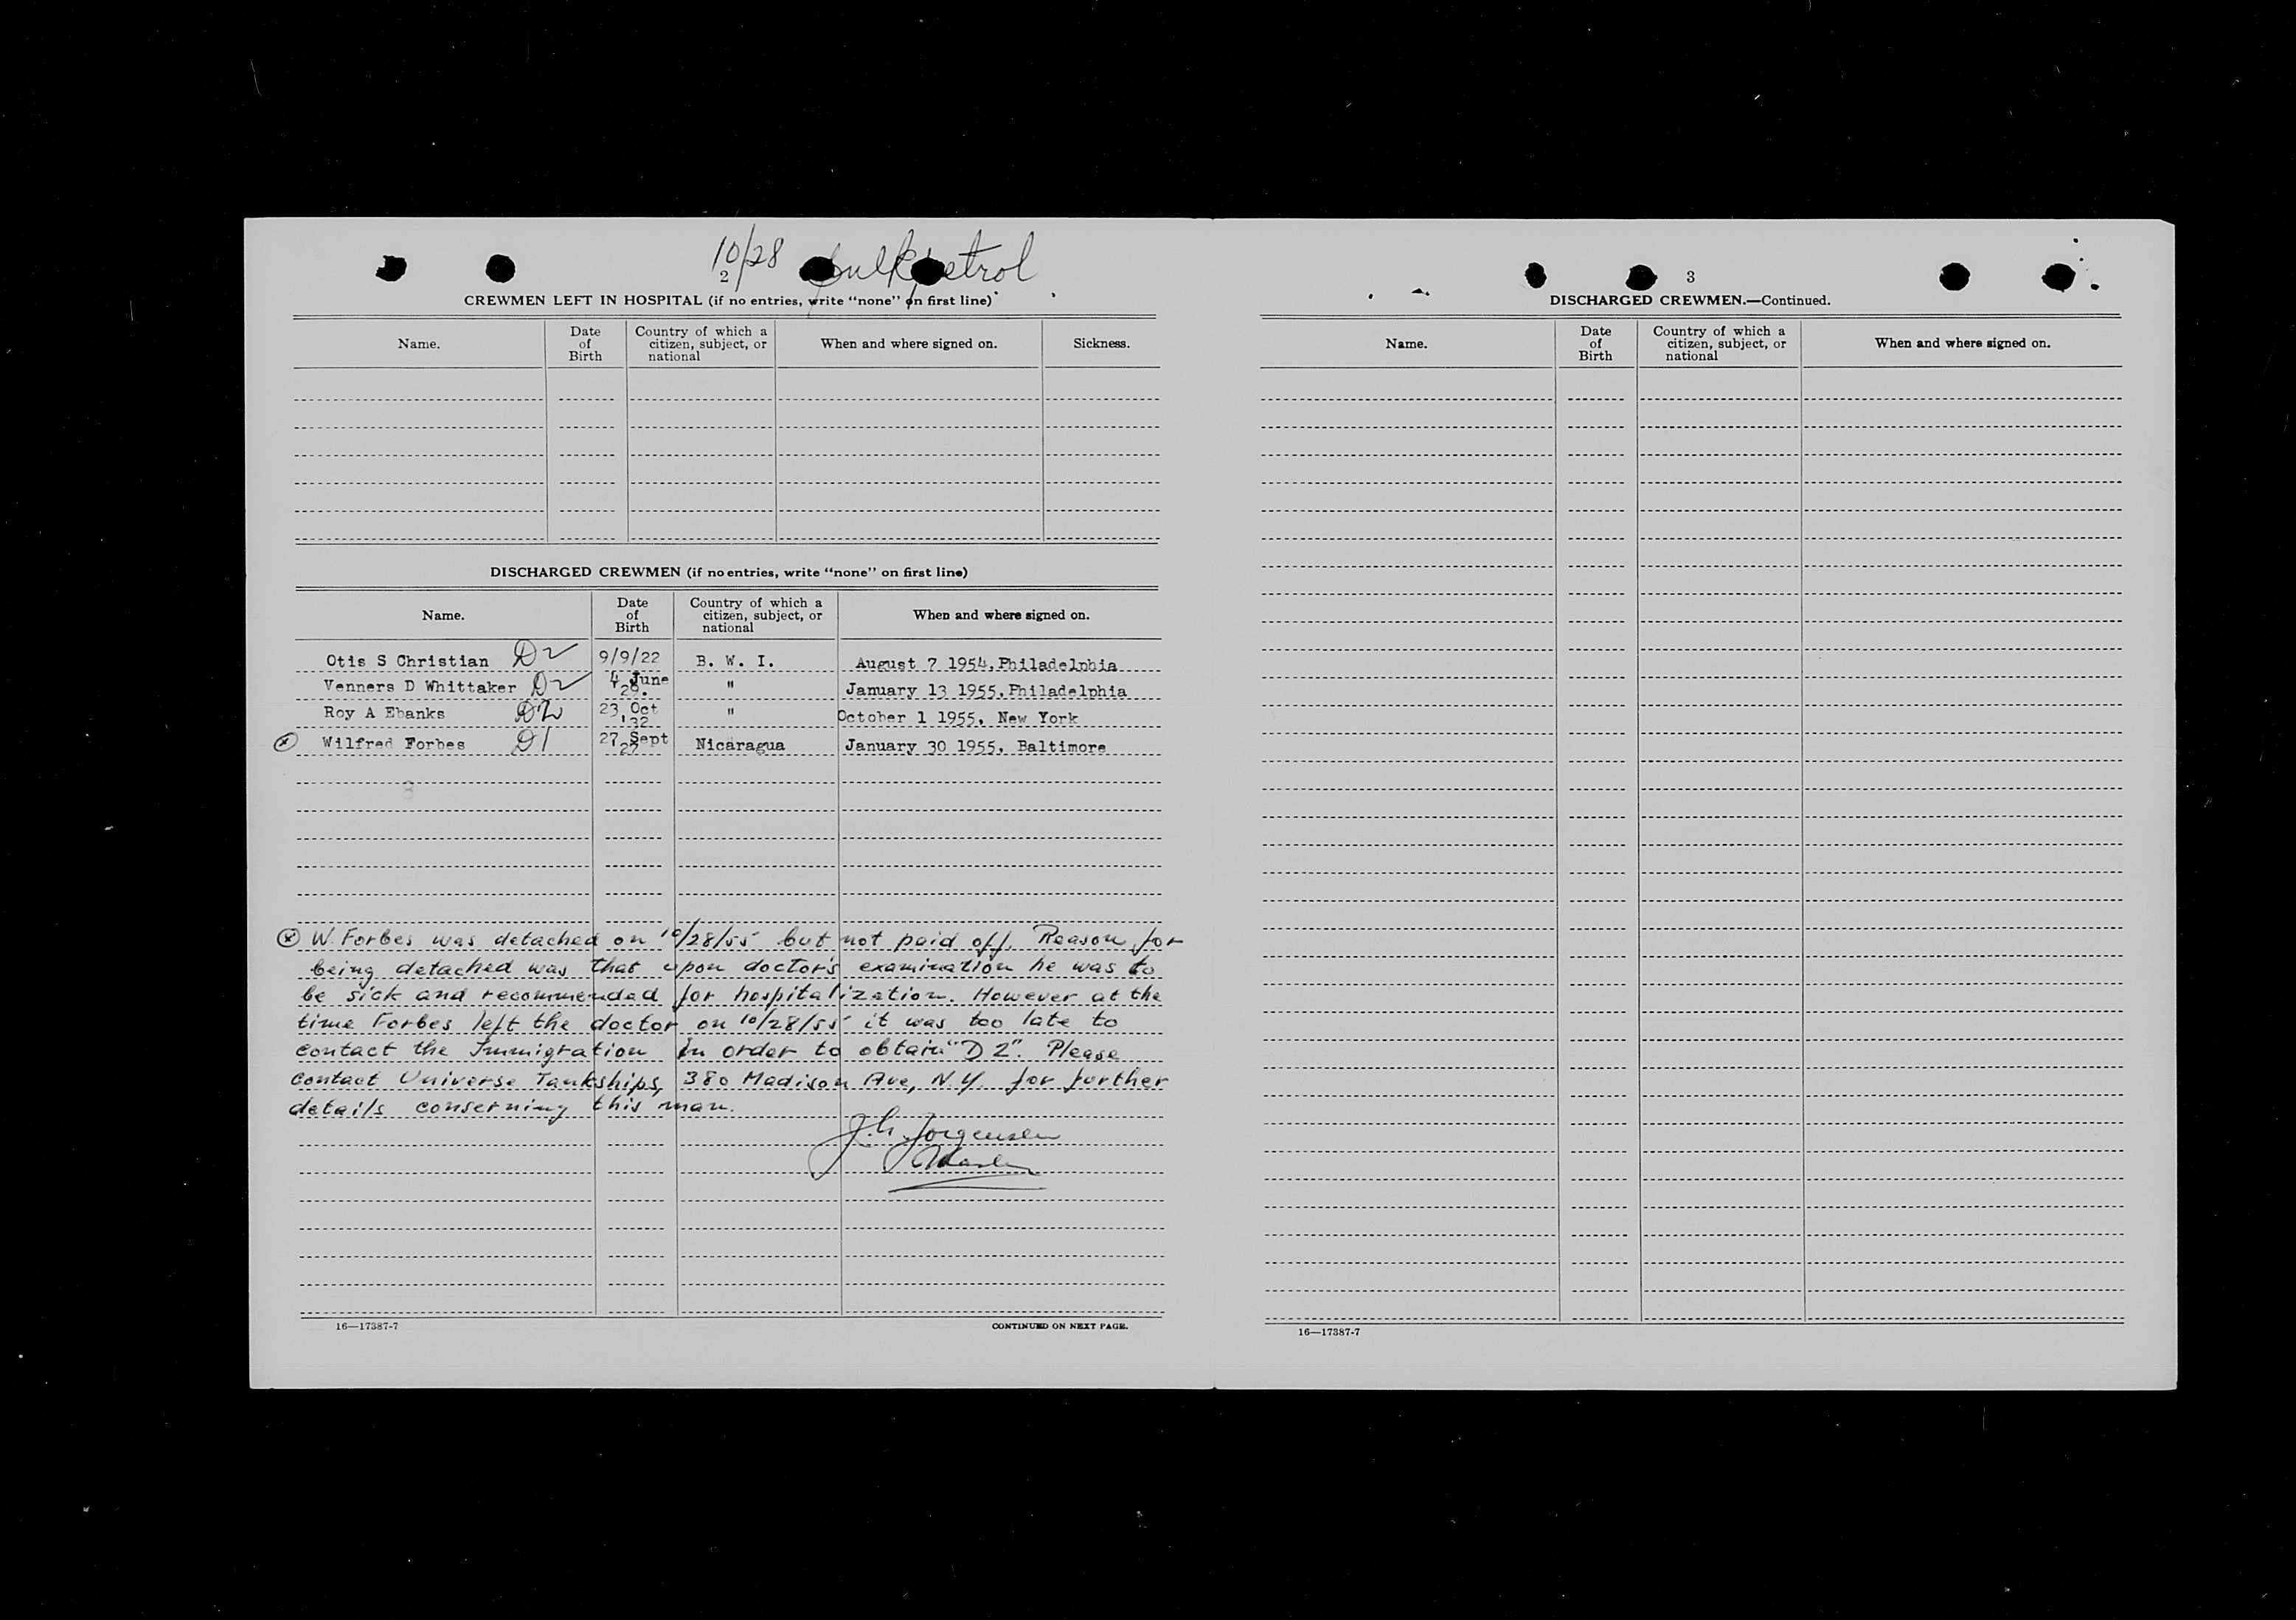 10/28 Bulkpetrol
2
CREWMEN LEFT IN HOSPITAL (if no entries, write "none" on first line)
Name. Date of Birth Country of which a citizen, subject, or national When and where signed on. Sickness.
DISCHARGED CREWMEN (if no entries, write "none" on first line)
Name. Date of Birth Country of which a citizen, subject, or national When and where signed on.
Otis S Christian D2 9/9/22 B. W. I. August 7 1954, Philadelphia
Venners D Whittaker D2 4 June 28. " January 13 1955, Philadelphia
Roy A Ebanks D2 23 Oct '32 " October 1 1955, New York
(x) Wilfred Forbes D1 27 Sept 27 Nicaragua January 30 1955, Baltimore
(x) W. Forbes was detached on 10/28/55 but not paid off. Reason for
being detached was that upon doctor's examination he was to
be sick and recommended for hospitalization. However at the
time Forbes left the doctor on 10/28/55 it was too late to
contact the Immigration in order to obtain "D 2". Please
contact Universe Tankships, 380 Madison Ave, N.Y. for further
details conserning this man.
J. G. Jorgensen
Master
16—17387-7 CONTINUED ON NEXT PAGE.
3
DISCHARGED CREWMEN.—Continued.
Name. Date of Birth Country of which a citizen, subject, or national When and where signed on.
16—17387-7